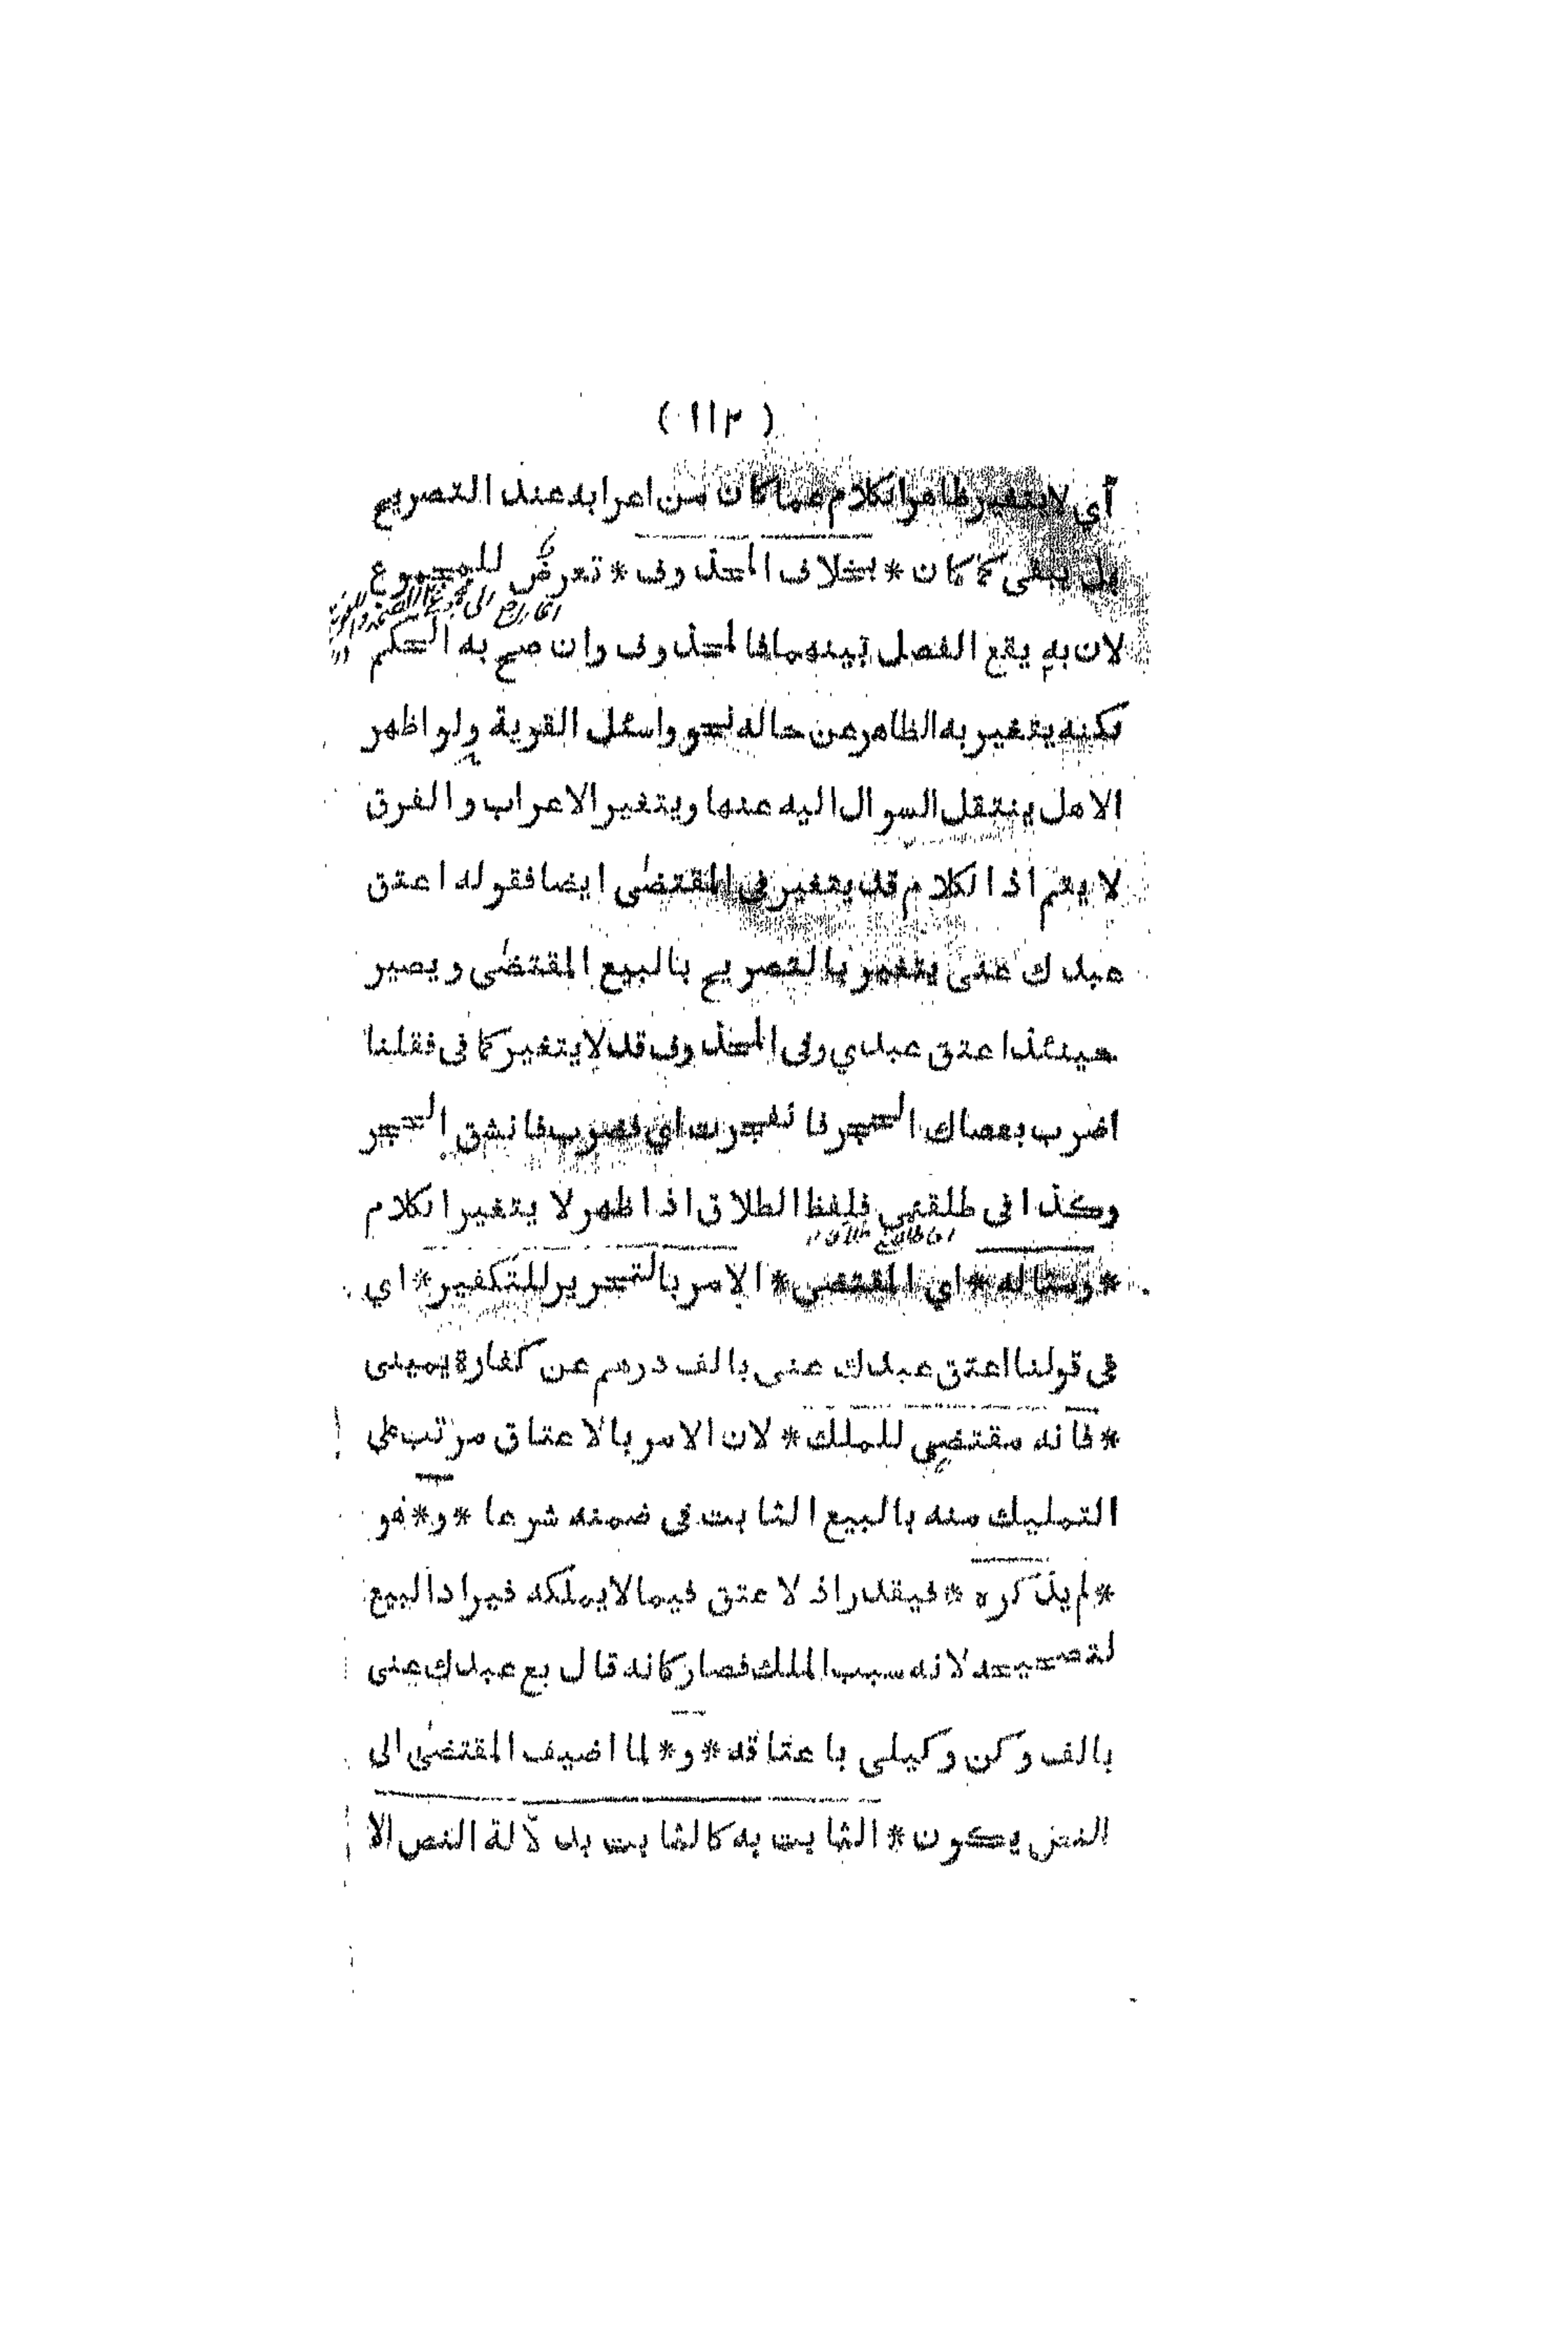 ( ١١٣ )
أي لا يتغير ظاهر الكلام عما كان من اعرابه عند التصريح
بل يبقى كما كان * بخلاف المحذوف * تعرض للمجموع
لان به يقع الفصل بينهما فالمحذوف وان صح به الحكم
لكنه يتغير به الظاهر عن حاله نحو واسئل القرية ولو اظهر
الاهل ينتقل السوال اليه عنها ويتغير الاعراب والفرق
لا يتم اذ الكلام قد يتغير في المقتضى ايضا فقوله اعتق
عبدك عنى يتغير بالتصريح بالبيع المقتضى ويصير
حينئذ اعتق عبدي وفى المحذوف قد لا يتغير كما فى فقلنا
اضرب بعصاك الحجر فانفجرت اي فضرب فانشق الحجر
وكذا فى طلقتهي فلفظ الطلاق اذا ظهر لا يتغير الكلام
* ومثاله * اي المقتضى * الامر بالتحرير للتكفير * اي
فى قولنا اعتق عبدك عنى بالف درهم عن كفارة يمينى
* فانه مقتضى للملك * لان الامر بالاعتاق مرتب على
التمليك منه بالبيع الثابت فى ضمنه شرعا * و * هو
* لم يذكره * فيقدر اذ لا عتق فيما لا يملكه فيراد البيع
لتصحيحه لانه سبب الملك فصار كانه قال بع عبدك عنى
بالف وكن وكيلى باعتاقه * و * لما اضيف المقتضى الى
النص يكون * الثابت به كالثابت بدلالة النص الا